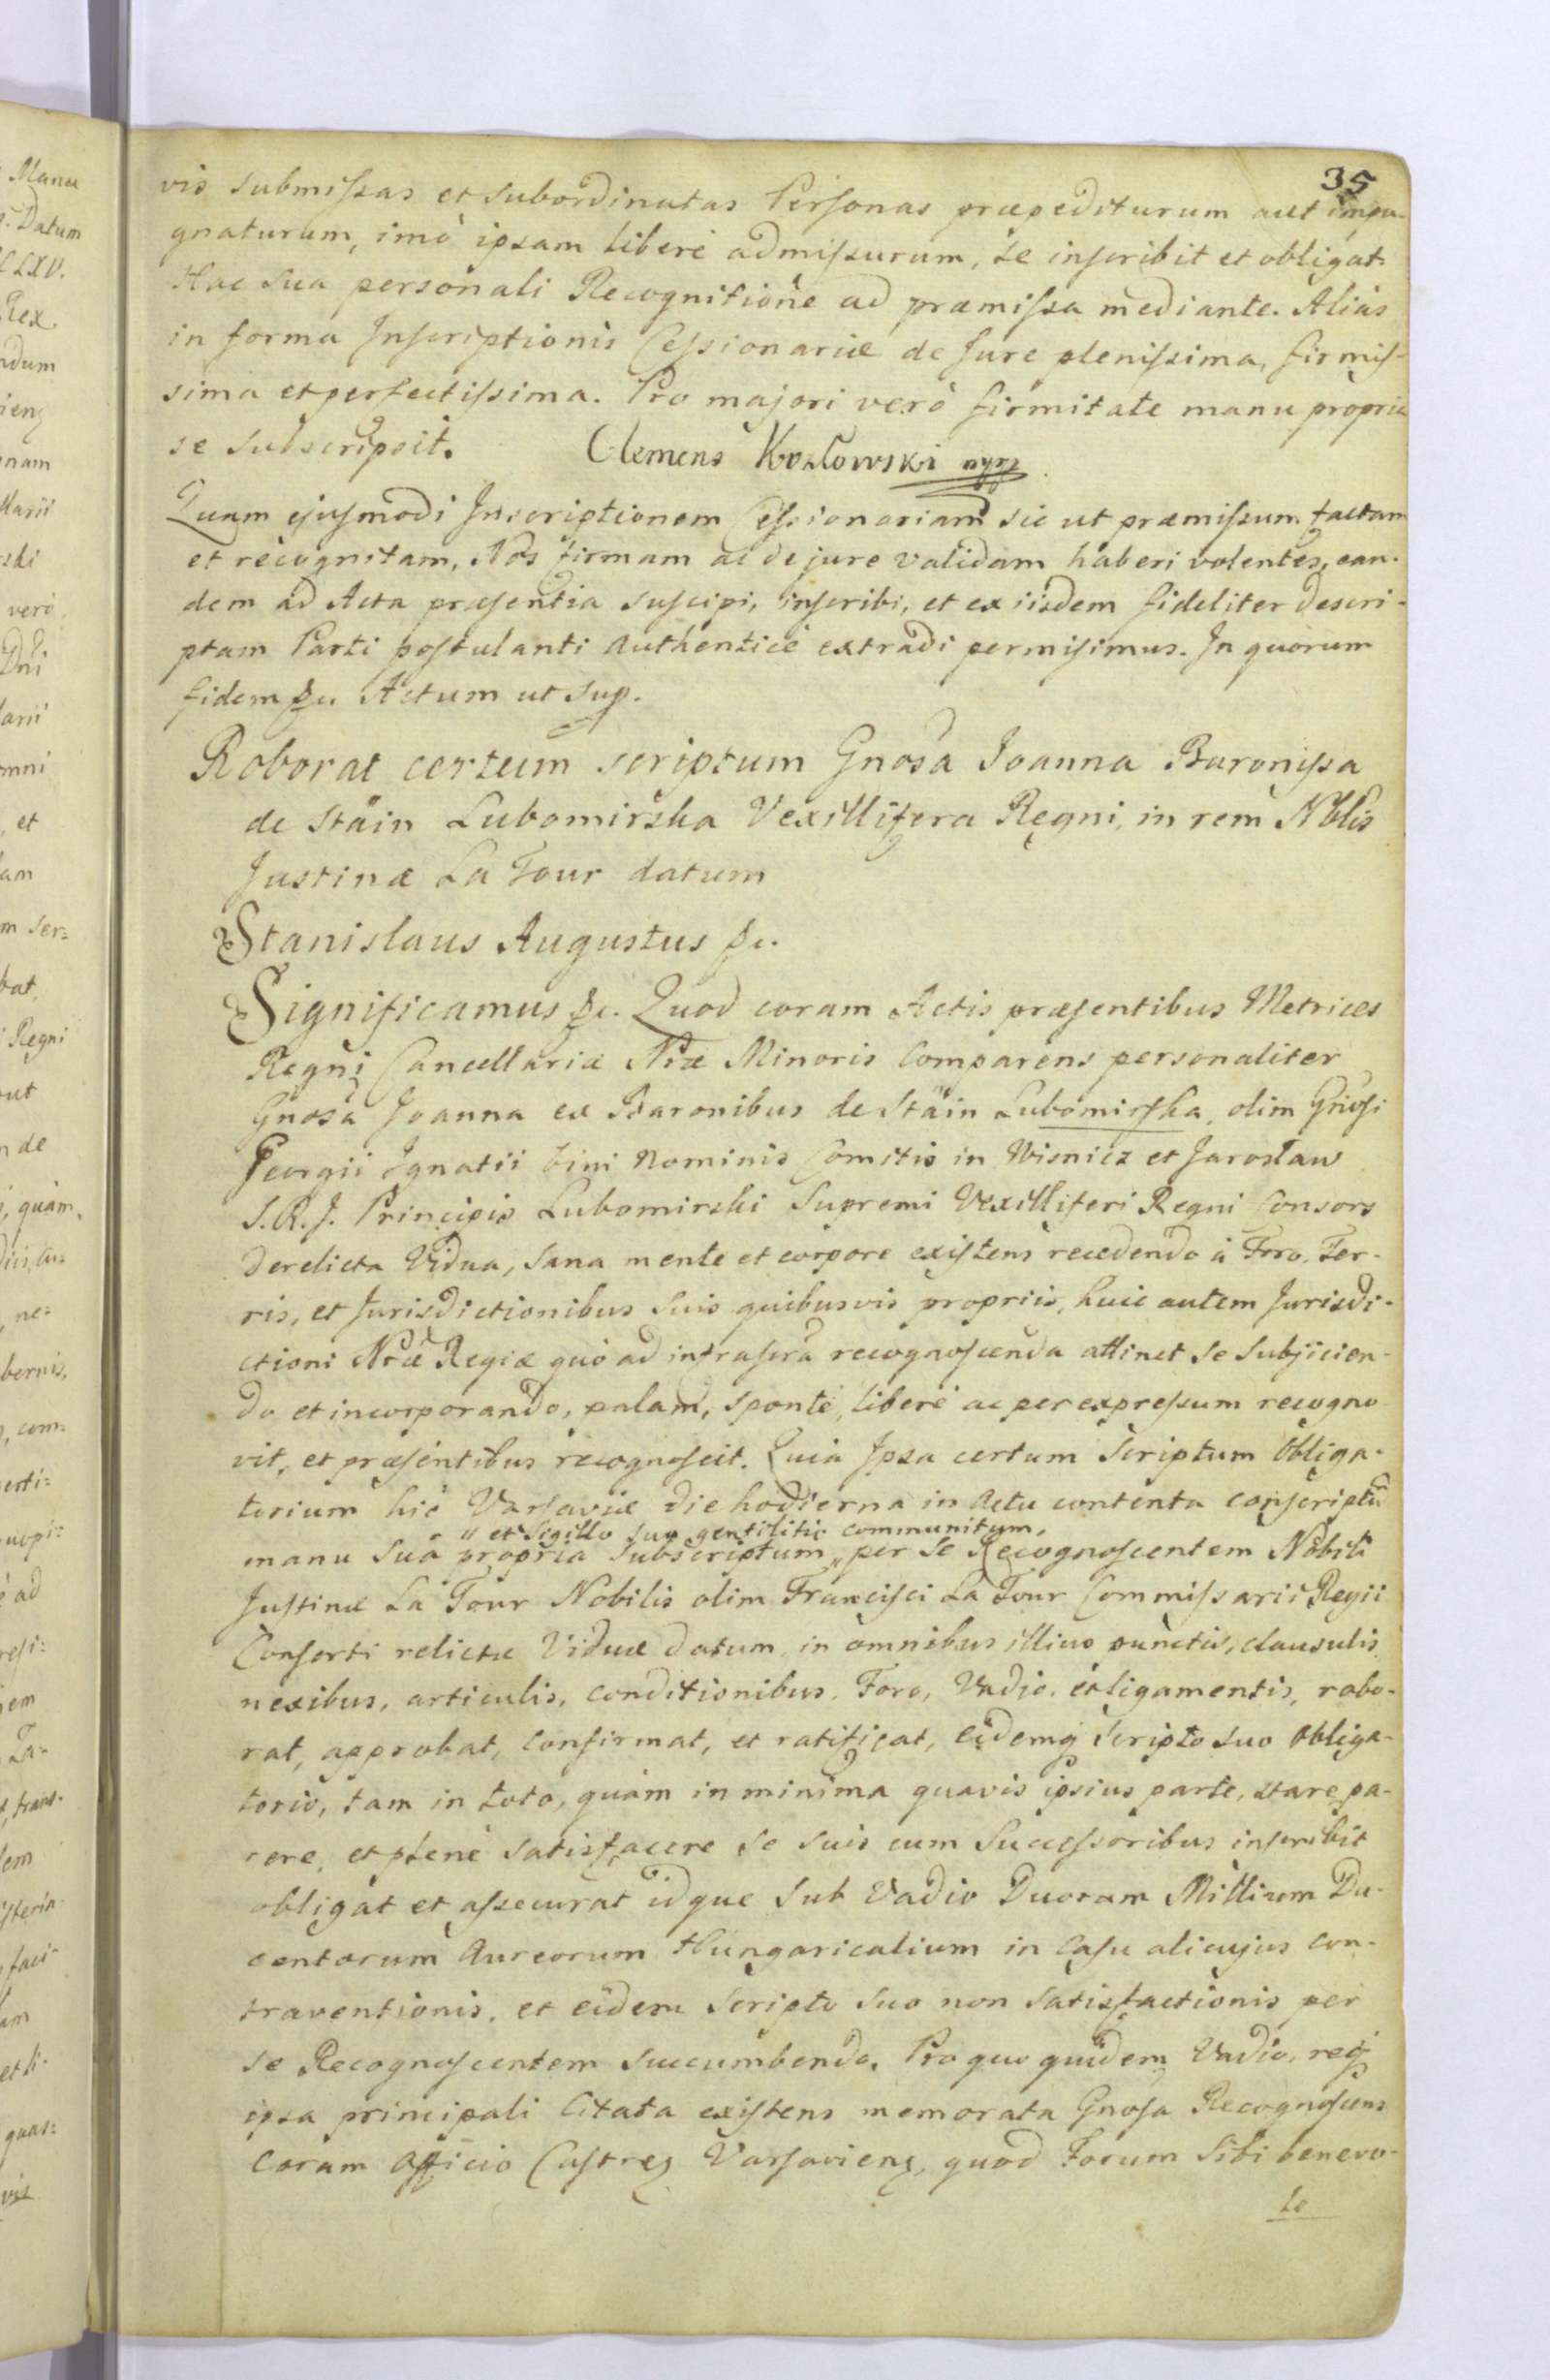 35
vis submissas et subordinatas Personas præpediturum aut impu-
gnaturum, imò ipsam liberè admissurum, se inscribit et obligat
Hac sua personali Recognitione ad præmissa mediante. Aliàs
in forma Inscriptionis Cessionariæ de Jure plenissima, firmis-
sima et perfectissima. Pro majori verò firmitate manu propria
se subscripsit. Clemens Kozłowski mpp
Quam ejusmodi Inscriptionem Cessionariam sic ut præmissum factam
et recognitam, Nos firmam ac de jure validam haberi volentes, ean-
dem ad Acta præsentia suscipi, inscribi, et ex iisdem fideliter descri-
ptam Parti postulanti authenticè extradi permisimus. In quorum
fidem &c. Actum ut sup.
Roborat certum scriptum Gnosa Joanna Baronissa
de Stäin Lubomirska Vexillifera Regni, in rem Nblis
Justinæ La Tour datum
Stanislaus Augustus &c.
Significamus &c. Quod coram Actis præsentibus Metrices
Regni Cancellariæ Nræ Minoris Comparens personaliter
Gnosa Joanna ex Baronibus de Stäin Lubomirska, olim Gnosi
Georgii Ignatii bini Nominis Comitis in Wisnicz et Jarosław
S.R.J. Principis Lubomirski Supremi Vexilliferi Regni Consors
derelicta Vidua, sana mente et corpore existens recedendo à Foro, Ter-
ris, et Jurisdictionibus suis quibusvis propriis, huic autem Jurisdi-
ctioni Nræ Regiæ quò ad infrascra recognoscenda attinet se subjicien-
do et incorporando, palam, spontè, liberè ac per expressum recogno
vit, et præsentibus recognoscit. Quia Ipsa certum Scriptum Obliga-
torium hic Varsaviæ die hodierna in Actu contenta conscriptũ
" et Sigillo suo gentilitio communitum,
manu suâ propria subscriptum " per se Recognoscentem Nobili
Justinæ La Tour Nobilis olim Francisci La Tour Commissarii Regii
Consorti relictæ Viduæ datum, in omnibus illius punctis, clausulis
nexibus, articulis, conditionibus, Foro, Vadio, et ligamentis, robo-
rat, approbat, confirmat, et ratificat, eidemq Scripto suo Obliga-
torio, tam in toto, quàm in minima quavis ipsius parte, stare, pa-
rere, et plenè satisfacere se suis cum Successoribus inscribit
obligat et assecurat idque sub Vadio Duorum Millium Du-
centorum Aureorum Hungaricalium in Casu alicujus con-
traventionis, et eidem Scripto suo non satisfactionis per
se Recognoscentem succumbendo. Pro quo quidem Vadio, req
ipsa principali Citata existens memorata Gnosa Recognoscens
Coram Officio Castren Varsavien, quod Forum sibi benevo-
le